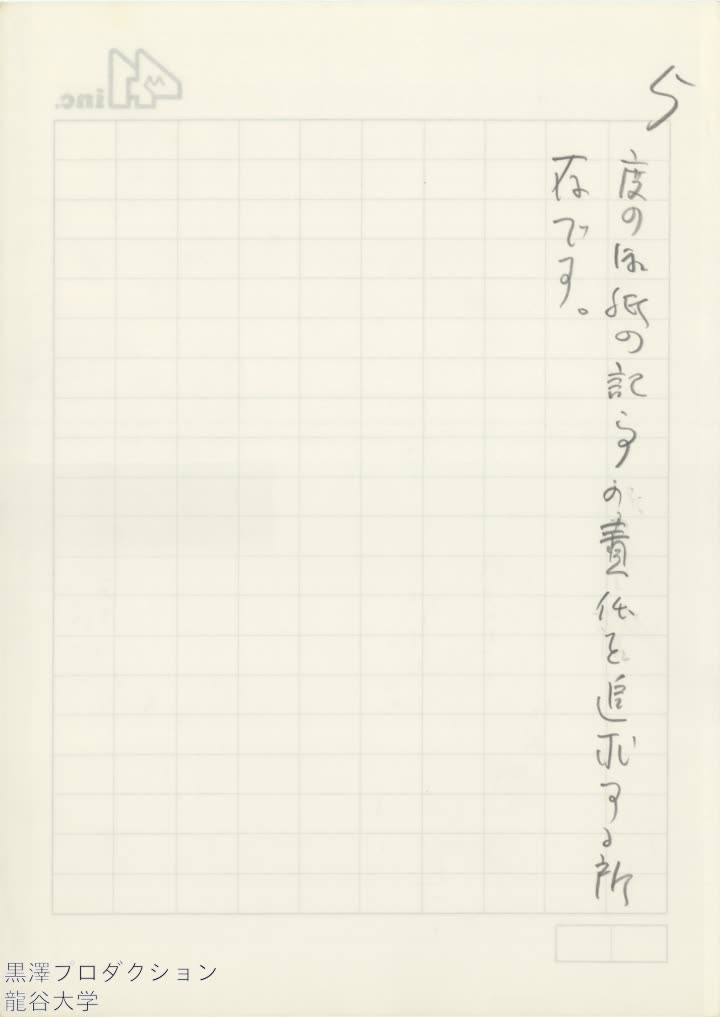 inc.
5
度の御紙の記事の責任を追求する所
存です。
黒澤プロダクション
龍谷大学